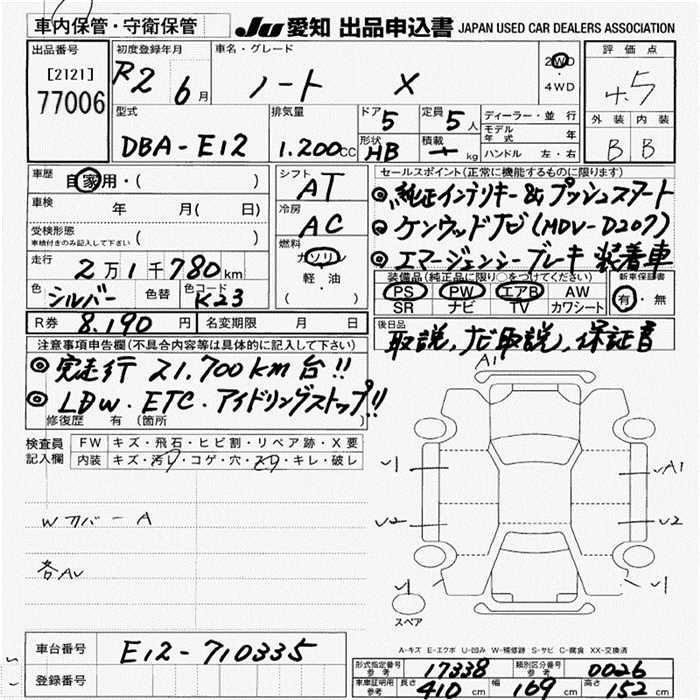 車内保管・守衛保管
JU 愛知 出品申込書 JAPAN USED CAR DEALERS ASSOCIATION
出品番号 初度登録年月 車名・グレード 評価点
[2121] 77006 R2 6月 ノート X 2WD・4WD 4.5
型式 排気量 ドア 定員 ディーラー・並行 外装 内装
DBA-E12 1.200cc 5 5人 モデル年式 年 B B
形状 HB 積載 kg ハンドル 左・右
車歴 自家用・( ) シフト AT セールスポイント(正常に機能するものに限ります)
◎純正インテリキー&プッシュスタート
車検 年 月( 日) 冷房 AC ◎ケンウッドナビ(MDV-D207)
受検形態 車検付きのみ記入して下さい ( ) 燃料 ガソリン 軽・油 ◎エマージェンシーブレーキ装着車
走行 2万1千780km 装備品(純正品に限り○をつけてください) 新車保証書
色 シルバー 色替 色コード K23 PS PW エアB AW 有・無
SR ナビ TV カワシート
R券 8.190円 名変期限 月 日 後日品
取説,ナビ取説,保証書
注意事項申告欄(不具合内容等は具体的に記入して下さい)
◎実走行 21,700km台!!
◎LDW.ETC.アイドリングストップ!!
修復歴 有 (箇所 )
検査員記入欄 FW キズ・飛石・ヒビ割・リペア跡・X要
内装 キズ・汚レ・コゲ・穴・スレ・キレ・破レ
A1
U1 A1
Wカバー A U2 U2
各AU
U1 U1
スペア
A-キズ E-エクボ U-凹み W-補修跡 S-サビ C-腐食 XX-交換済
車台番号 E12-710335
登録番号
形式指定番号参考 17338 類別区分番号参考 0026
車庫証明用参考 長さ 410cm 幅 169cm 高さ 152cm